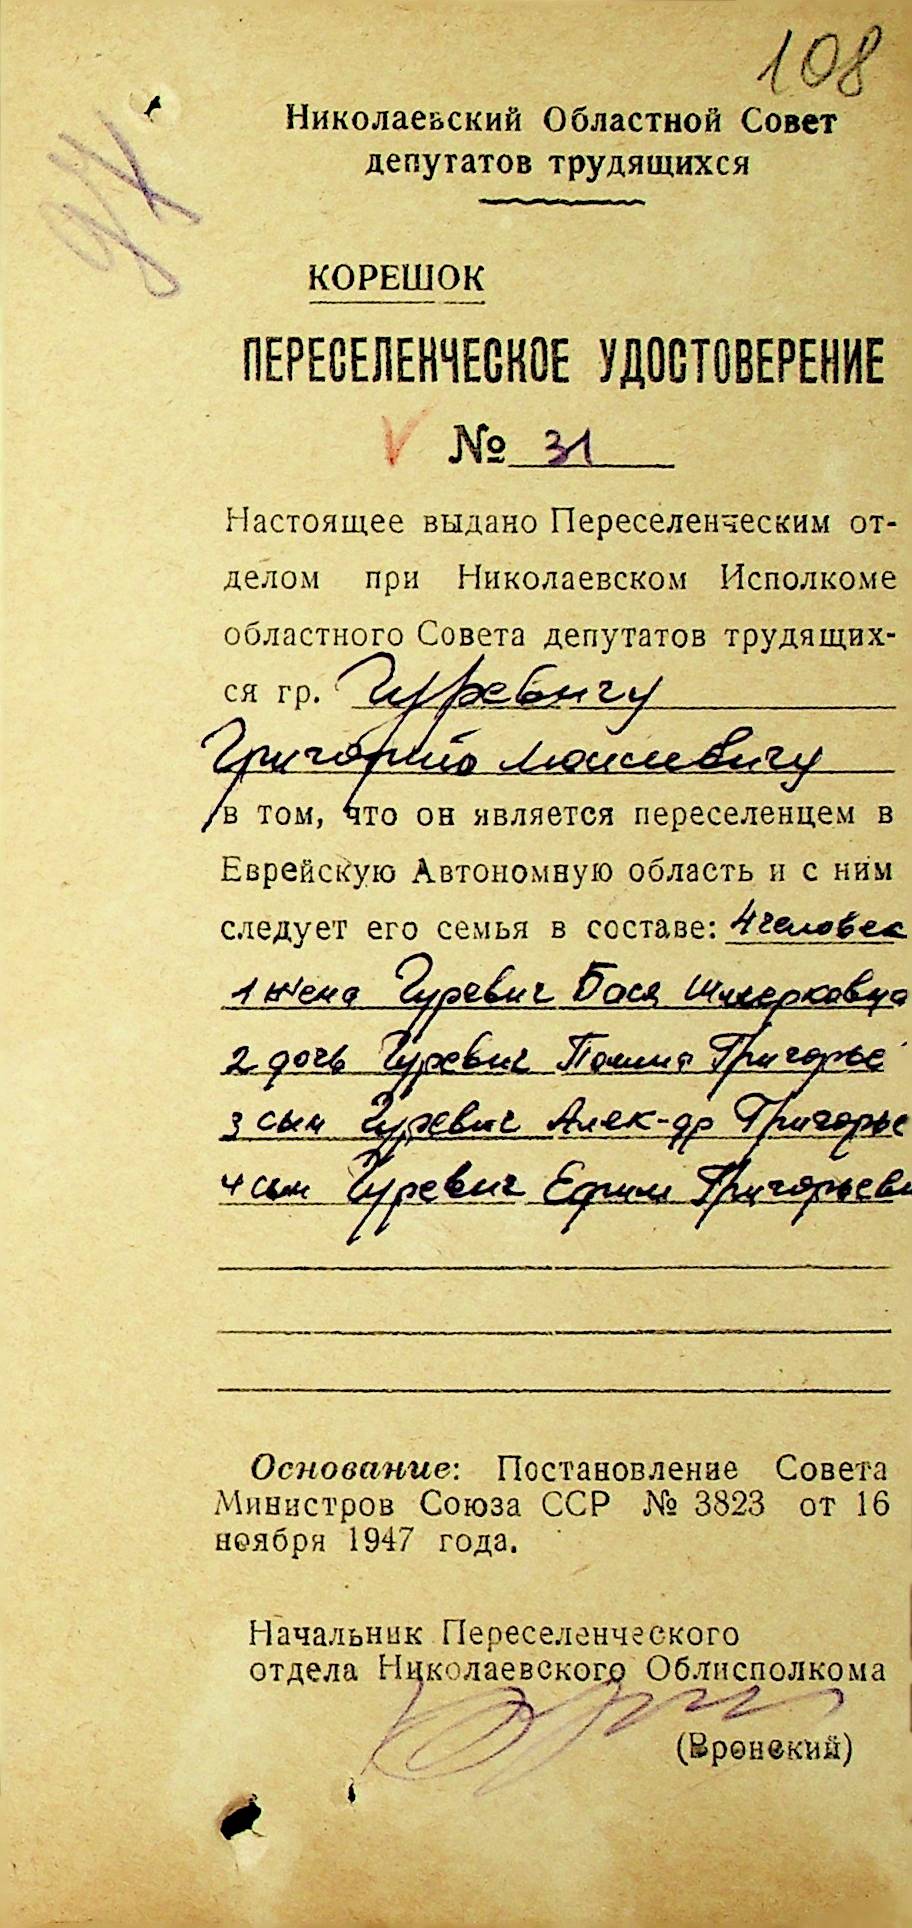 108
Николаевский Областной Совет
депутатов трудящихся
КОРЕШОК
ПЕРЕСЕЛЕНЧЕСКОЕ УДОСТОВЕРЕНИЕ
№ 31
Настоящее выдано Переселенческим от-
делом при Николаевском Исполкоме
областного Совета депутатов трудящих-
ся гр. Гуревичу
Григорию Моисеевичу
в том, что он является переселенцем в
Еврейскую Автономную область и с ним
следует его семья в составе: 4 человек
1 жена Гуревич Бася
2 дочь Гуревич Полина Григорье
3 сын Гуревич Алек-др Григорье
4 сын Гуревич Ефим Григорьеви
Основание: Постановление Совета
Министров Союза ССР № 3823 от 16
ноября 1947 года.
Начальник Переселенческого
отдела Николаевского Облисполкома
(Вронский)